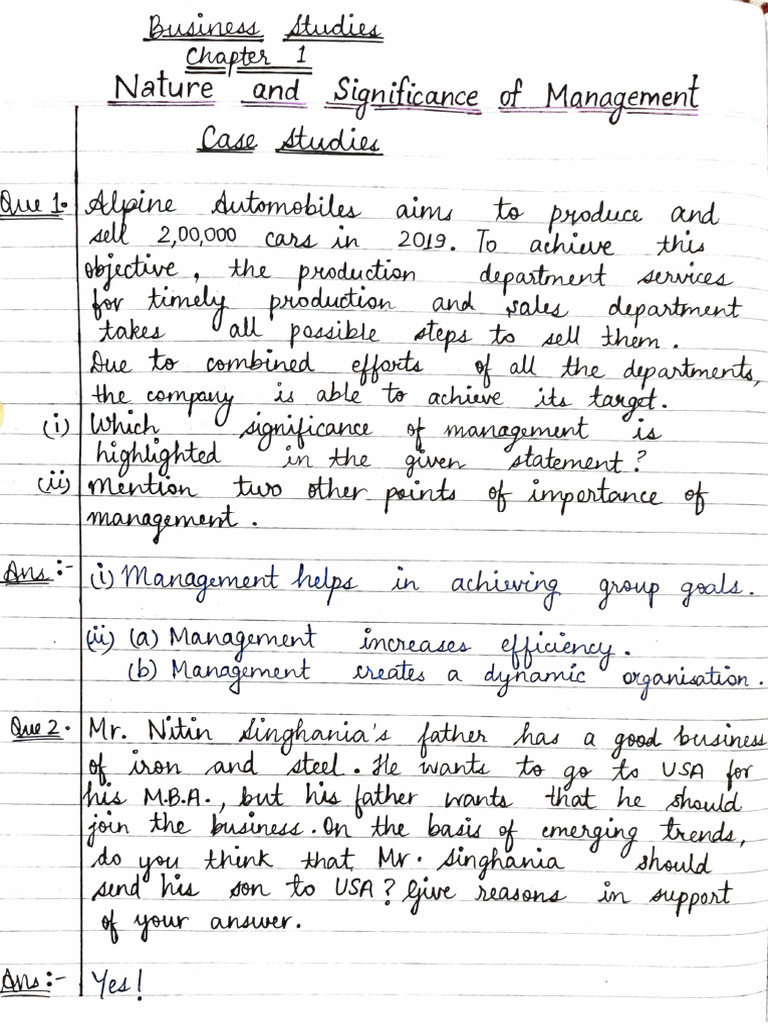 Business Studies
Chapter 1
Nature and Significance of Management
Case Studies
Que 1. Alpine Automobiles aims to produce and
sell 2,00,000 cars in 2019. To achieve this
objective, the production department services
for timely production and sales department
takes all possible steps to sell them.
Due to combined efforts of all the departments,
the company is able to achieve its target.
(i) Which significance of management is
highlighted in the given statement?
(ii) Mention two other points of importance of
management.
Ans:- (i) Management helps in achieving group goals.
(ii) (a) Management increases efficiency.
(b) Management creates a dynamic organisation.
Que 2. Mr. Nitin Singhania's father has a good business
of iron and steel. He wants to go to USA for
his M.B.A., but his father wants that he should
join the business. On the basis of emerging trends,
do you think that Mr. Singhania should
send his son to USA? Give reasons in support
of your answer.
Ans:- Yes!